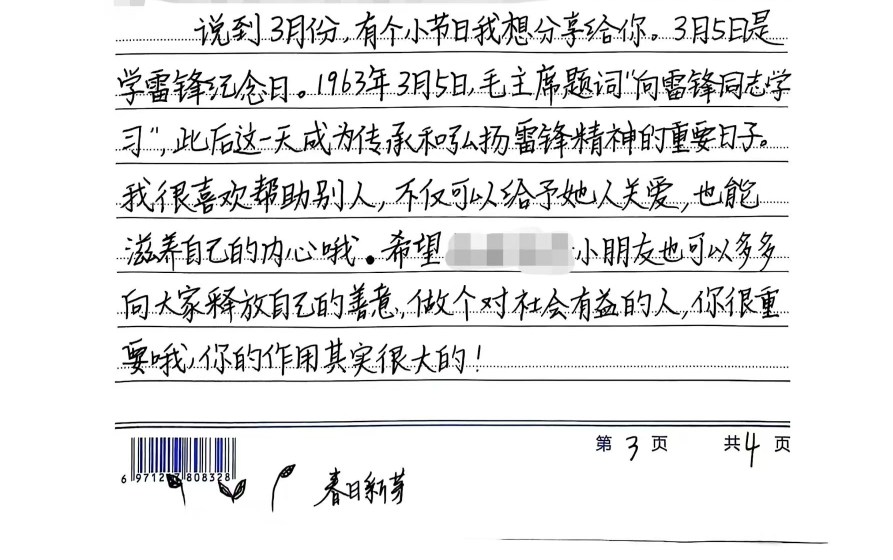 说到3月份,有个小节日我想分享给你。3月5日是
学雷锋纪念日。1963年3月5日,毛主席题词"向雷锋同志学
习",此后这一天成为传承和弘扬雷锋精神的重要日子。
我很喜欢帮助别人,不仅可以给予她人关爱,也能
滋养自己的内心哦。希望 小朋友也可以多多
向大家释放自己的善意,做个对社会有益的人,你很重
要哦,你的作用其实很大的!
第3页 共4页
6 971263 808328
春日新芽